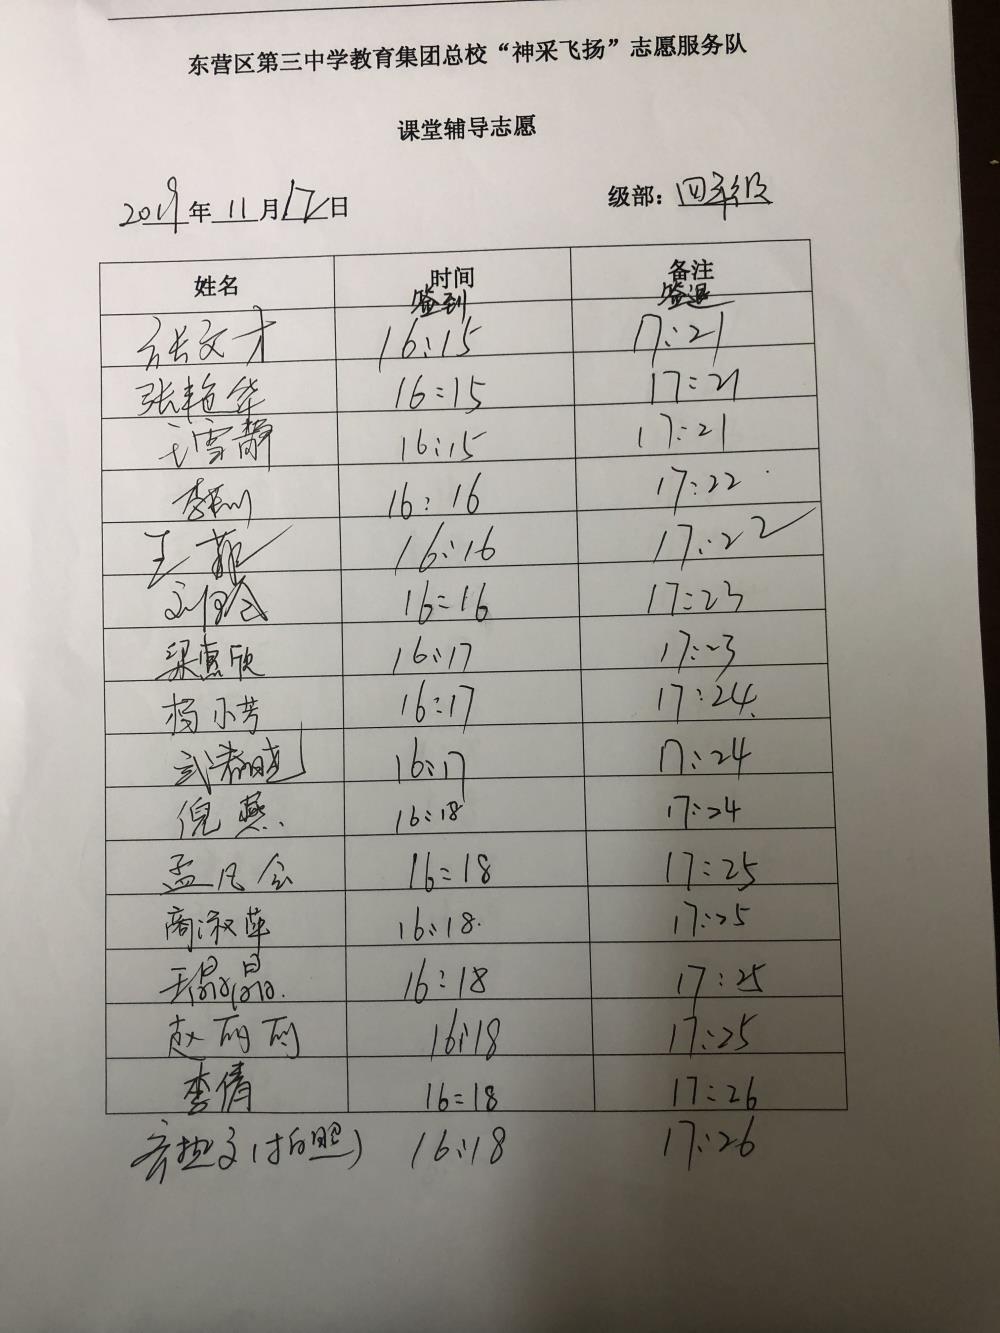 东营区第三中学教育集团总校“神采飞扬”志愿服务队
课堂辅导志愿
2019年11月12日 级部：四年级
姓名 时间 备注
签到 签退
张文才 16:15 17:21
张艳华 16:15 17:21
王雪静 16:15 17:21
李 16:16 17:22
王菲 16:16 17:22
刘 16:16 17:23
梁惠欣 16:17 17:23
杨小芳 16:17 17:24
武春晓 16:17 17:24
倪燕 16:18 17:24
孟凡会 16:18 17:25
商淑萍 16:18 17:25
王晶晶 16:18 17:25
赵丽丽 16:18 17:25
李倩 16:18 17:26
(拍照) 16:18 17:26